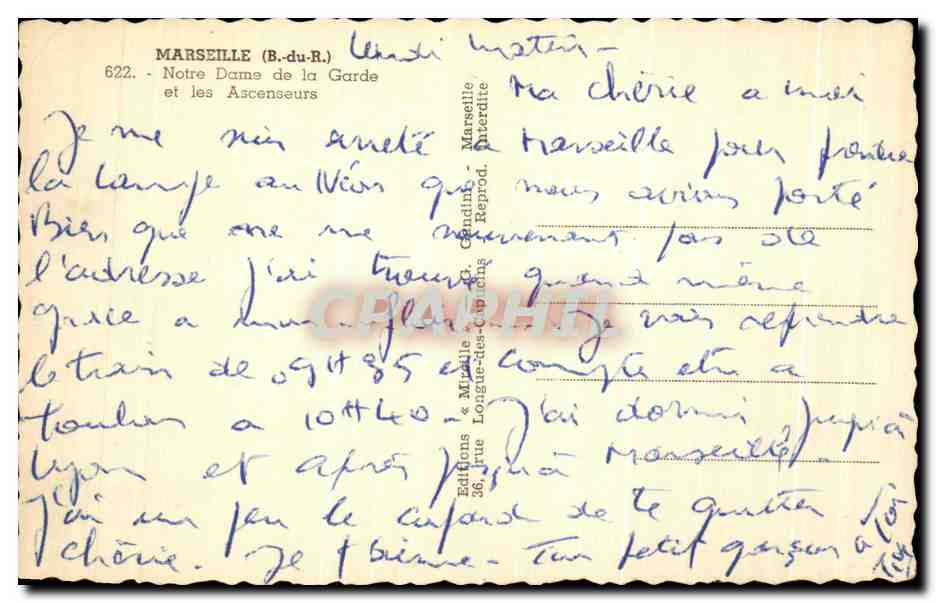 MARSEILLE (B.-du-R.)
622. - Notre Dame de la Garde
et les Ascenseurs
Lundi Matin -
Ma chérie a moi
Je me suis arrêté a Marseille pour prendre
la lampe au Néon que nous avions porté
Bien que ne me souvenant pas de
l'adresse j'ai trouvé quand même
grace a mon flair.... Je vais reprendre
le train de 09H35 et compte etre a
toulon a 10H40 - J'ai dormi jusqu'à
Lyon et après jusqu'à Marseille.
J'ai un peu le cafard de te quitter
chérie. Je t'aime - Ton petit garçon
a toi
Editions « Mireille » - G. Gandini - Marseille
36, rue Longue-des-Capucins Reprod. Interdite
CPAPHIL